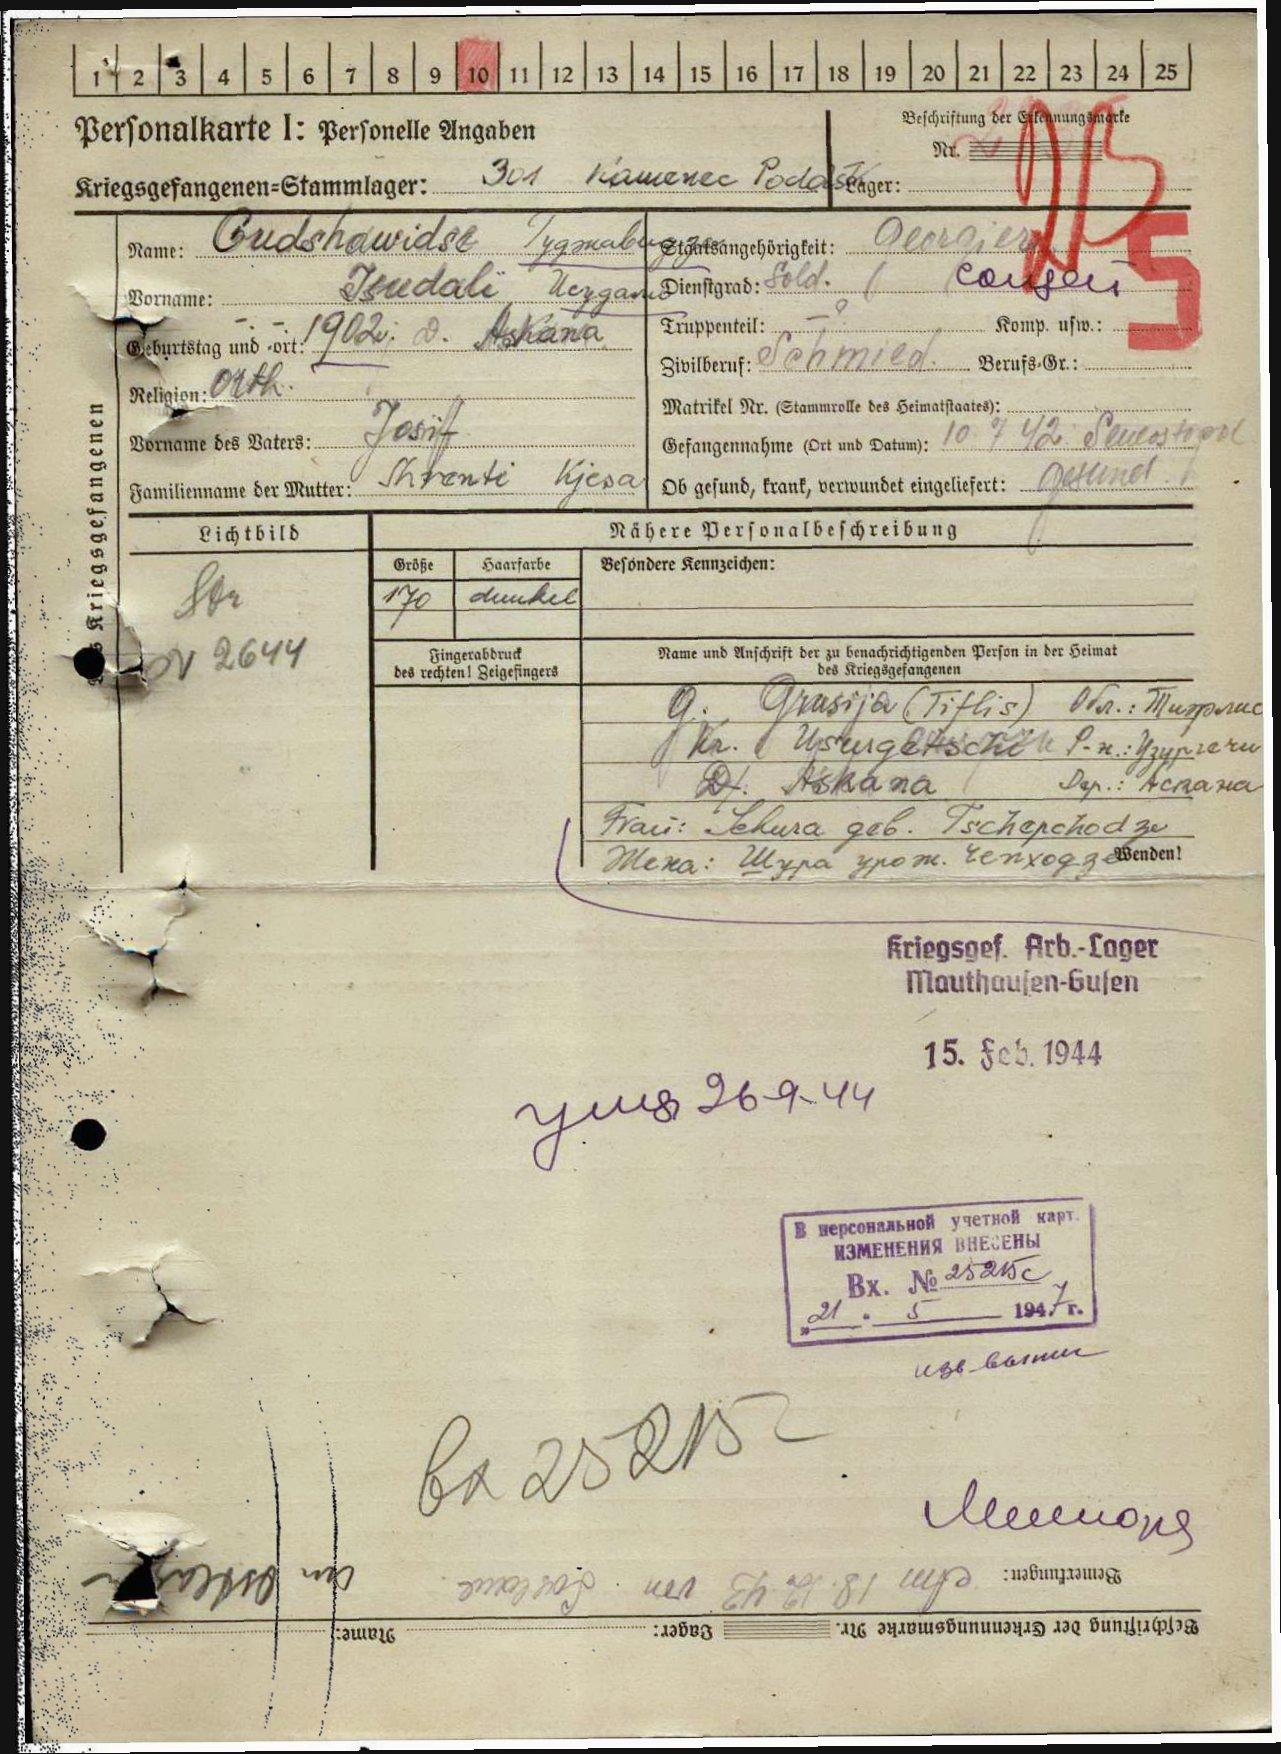 1 2 3 4 5 6 7 8 9 10 11 12 13 14 15 16 17 18 19 20 21 22 23 24 25
Personalkarte I: Personelle Angaben
Beschriftung der Erkennungsmarke
Nr.
Kriegsgefangenen=Stammlager: 301 Kamenec Podolsk
Lager:
Des Kriegsgefangenen
Name: Gudshawidse Гуджабидзе
Vorname: Isudali
Geburtstag und -ort: -.-. 1902. D. Askana
Religion: Orth.
Vorname des Vaters: Josiff
Familienname der Mutter: Kjesa
Staatsangehörigkeit: Georgier
Dienstgrad: Sold. солдат
Truppenteil: -?- Komp. usw.:
Zivilberuf: Schmied. Berufs-Gr.:
Matrikel Nr. (Stammrolle des Heimatstaates):
Gefangennahme (Ort und Datum): 10 7 42. Sewastopol
Ob gesund, krank, verwundet eingeliefert: gesund.
Lichtbild
N 2644
Nähere Personalbeschreibung
Größe Haarfarbe Besondere Kennzeichen:
170 dunkel
Fingerabdruck
des rechten! Zeigefingers
Name und Anschrift der zu benachrichtigenden Person in der Heimat
des Kriegsgefangenen
G. Grusija (Tiflis) Обл.: Тифлис
Kr. Usurgetschi Р-н.: Узургечи
Df. Askana Дер.: Аскана
Frau: Schura geb. Tschepchodze
Жена: Шура урож. Чепходзе
Wenden!
Kriegsgef. Arb.-Lager
Mauthausen-Gusen
15. Feb. 1944
26-9-44
В персональной учетной карт.
ИЗМЕНЕНИЯ ВНЕСЕНЫ
Вх. № 25215с
„21" 5 1947 г.
Вх 25215
Bemerkungen: Am 18.12.43 von
Beschriftung der Erkennungsmarke Nr. Lager: Name: